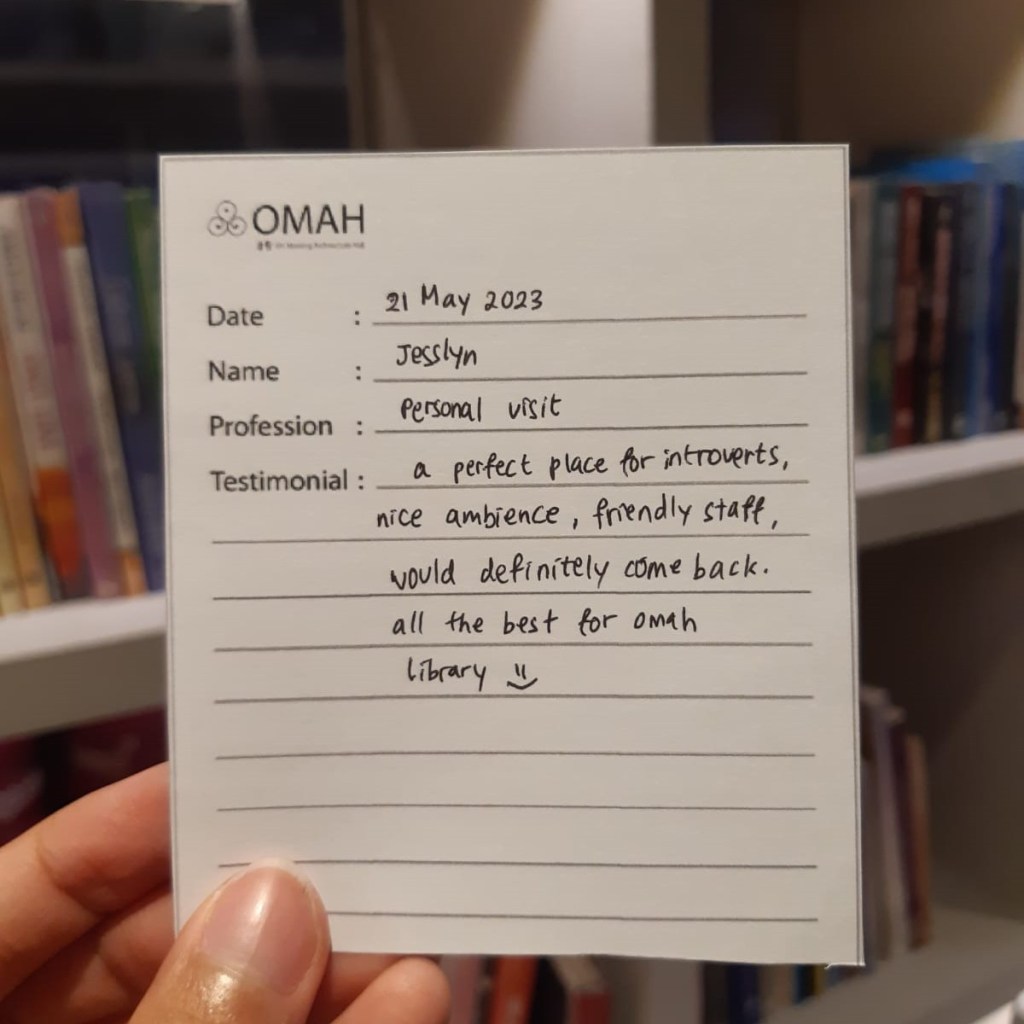 OMAH
Date : 21 May 2023
Name : Jesslyn
Profession : Personal visit
Testimonial : a perfect place for introverts,
nice ambience, friendly staff,
would definitely come back.
all the best for omah
library